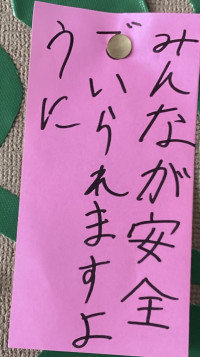 みんなが安全
でいられますよ
うに